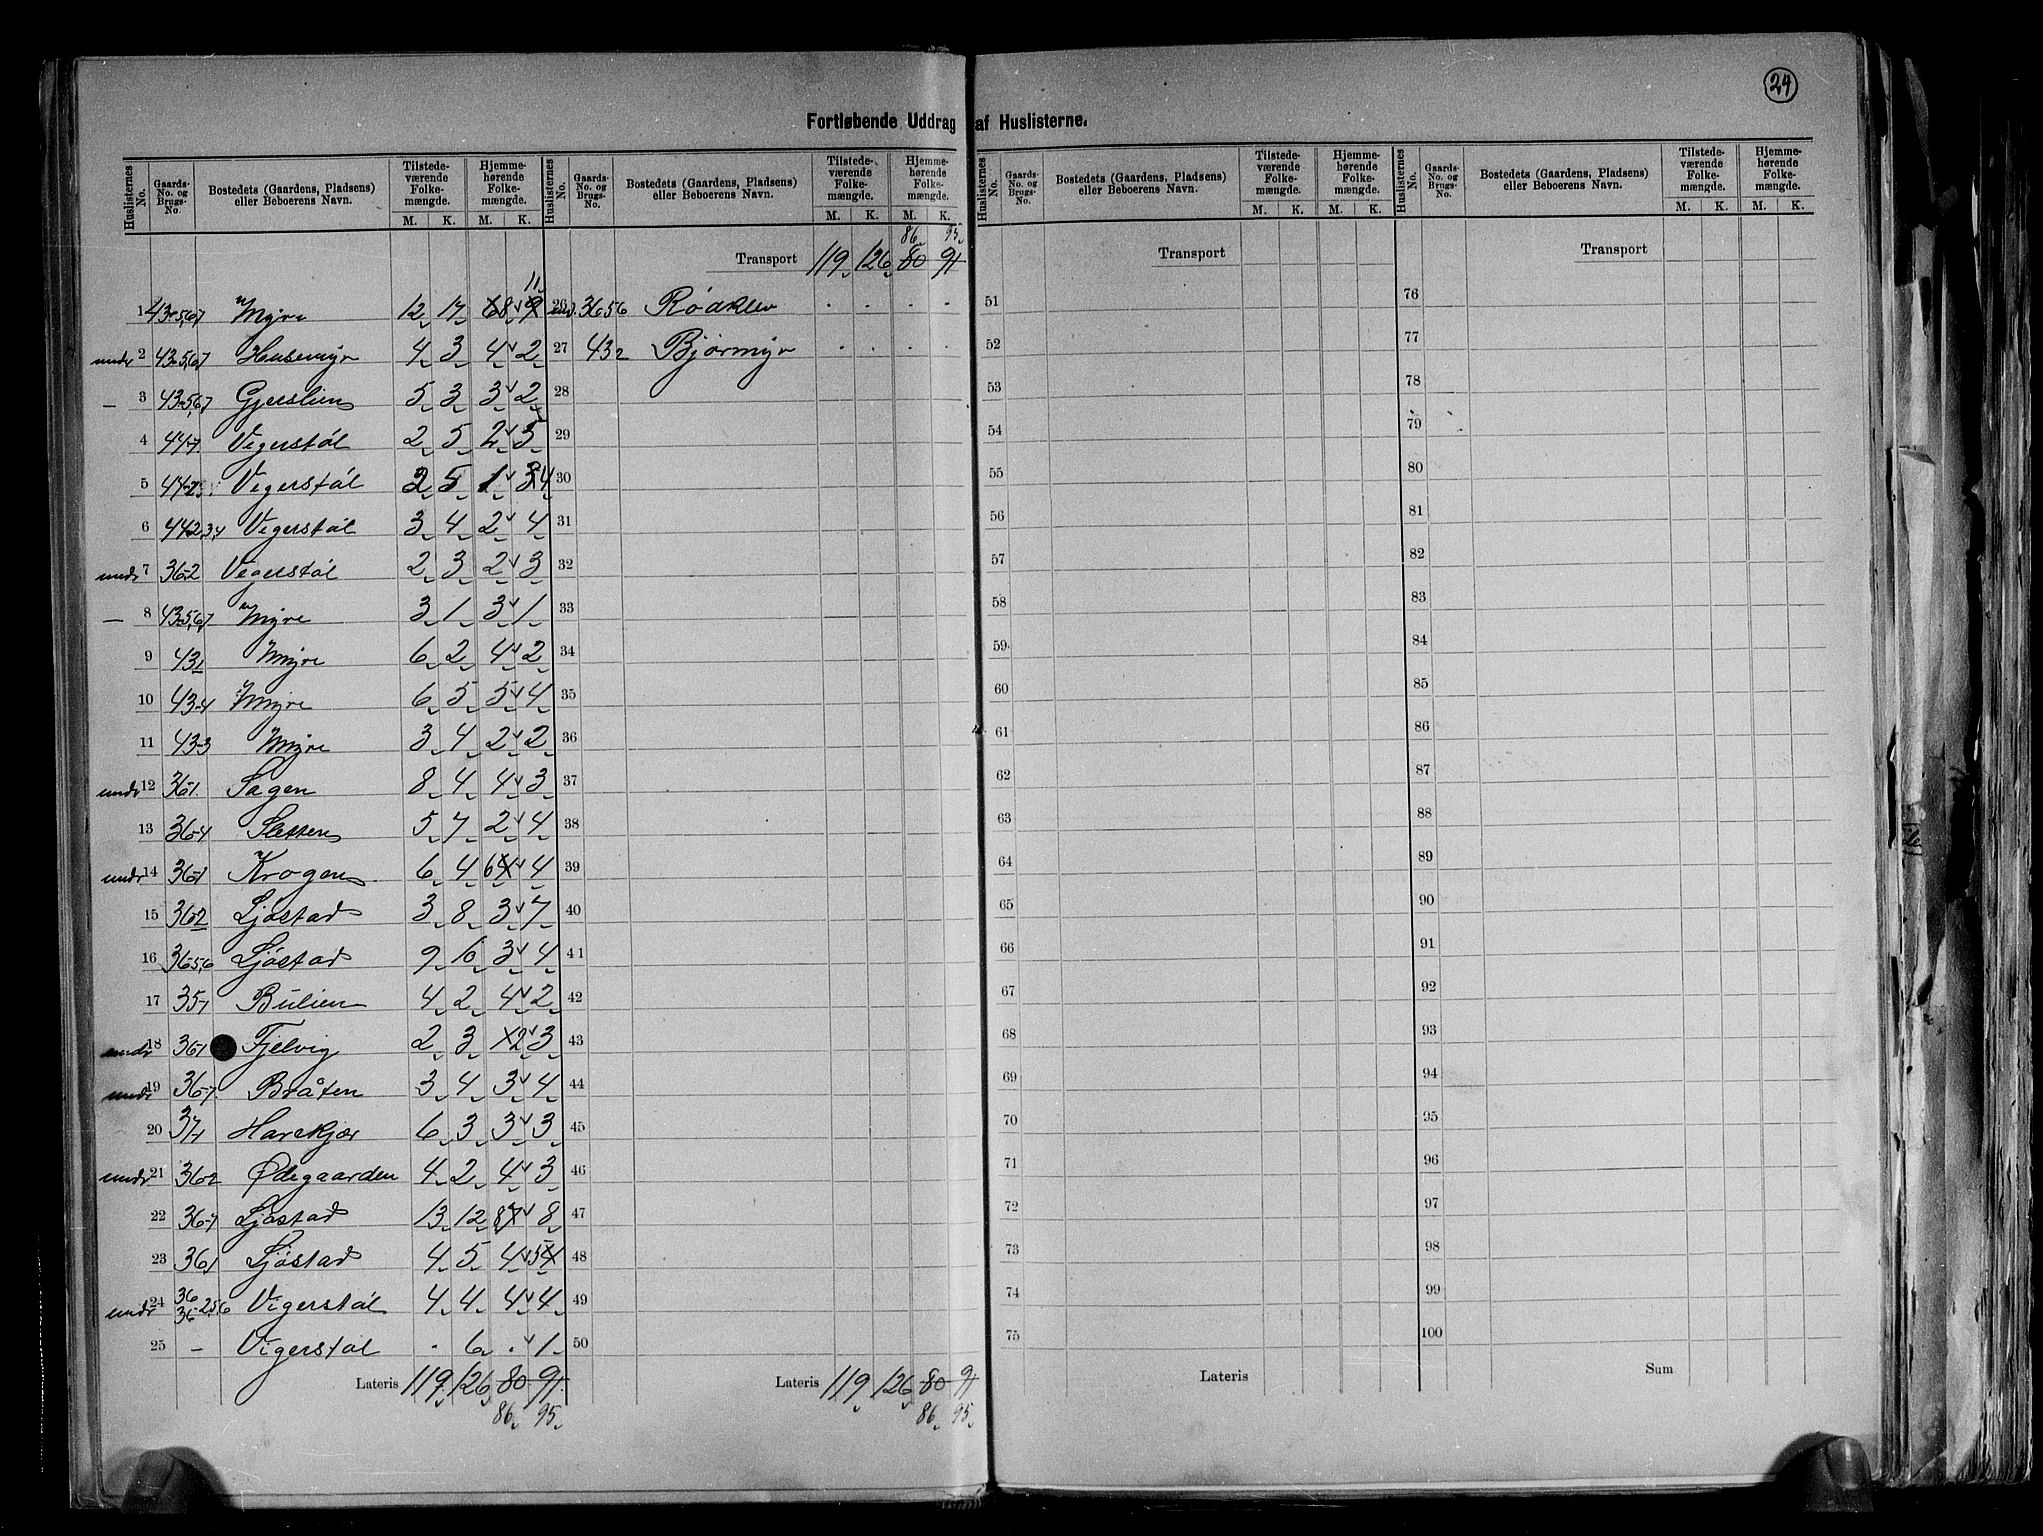 24
Fortløbende Uddrag af Huslisterne.
Huslisternes No. Gaards-No. og Brugs-No. Bostedets (Gaardens, Pladsens) eller Beboerens Navn. Tilstedeværende Folkemængde. M. K. Hjemmehørende Folkemængde. M. K.
Huslisternes No. Gaards-No. og Brugs-No. Bostedets (Gaardens, Pladsens) eller Beboerens Navn. Tilstedeværende Folkemængde. M. K. Hjemmehørende Folkemængde. M. K.
1 43-5,6,7 Myre 12 17 8 11
undr 2 43-5,6,7 Husemyr 4 3 4 2
— 3 43-5,6,7 Gjerslien 5 3 3 2
4 44-7 Vegerstøl 2 5 2 5
5 44-2 Vigerstøl 2 5 1 4
6 44-2,3,4 Vegerstøl 3 4 2 4
undr 7 36-2 Vegerstøl 2 3 2 3
— 8 43-5,6,7 Myre 3 1 3 1
9 43-1 Myre 6 2 4 2
10 43-4 Myre 6 5 5 4
11 43-3 Myre 3 4 2 2
undr 12 36-1 Sagen 8 4 4 3
13 36-4 Sletten 5 7 2 4
undr 14 36-1 Krogen 6 4 6 4 4
15 36-2 Ljøstad 3 8 3 7
16 36-5,6 Ljøstad 9 10 3 4
17 35-1 Bulien 4 2 4 2
undr 18 36-1 Fjelvig 2 3 2 3
undr 19 36-7 Bråten 3 4 3 4
20 37-1 Harekjær 6 3 3 3
undr 21 36-2 Ødegaarden 4 2 4 3
22 36-7 Ljøstad 13 12 8 7 8
23 36-1 Ljøstad 4 5 4 5 4
undr 24 36 36-2,5,6 Vigerstøl 4 4 4 4
25 - Vigerstøl . 6 . 1
Lateris 119 126 80 91
86 95
86 95
Transport 119 126 80 91
26 und. 36-5,6 Røaklev . . . .
27 43-2 Bjørmyr . . . .
28
29
30
31
32
33
34
35
36
37
38
39
40
41
42
43
44
45
46
47
48
49
50
Lateris 119 126 80 91
86 95
Huslisternes No. Gaards-No. og Brugs-No. Bostedets (Gaardens, Pladsens) eller Beboerens Navn. Tilstedeværende Folkemængde. M. K. Hjemmehørende Folkemængde. M. K.
Transport
51
52
53
54
55
56
57
58
59
60
61
62
63
64
65
66
67
68
69
70
71
72
73
74
75
Lateris
Huslisternes No. Gaards-No. og Brugs-No. Bostedets (Gaardens, Pladsens) eller Beboerens Navn. Tilstedeværende Folkemængde. M. K. Hjemmehørende Folkemængde. M. K.
Transport
76
77
78
79
80
81
82
83
84
85
86
87
88
89
90
91
92
93
94
95
96
97
98
99
100
Sum